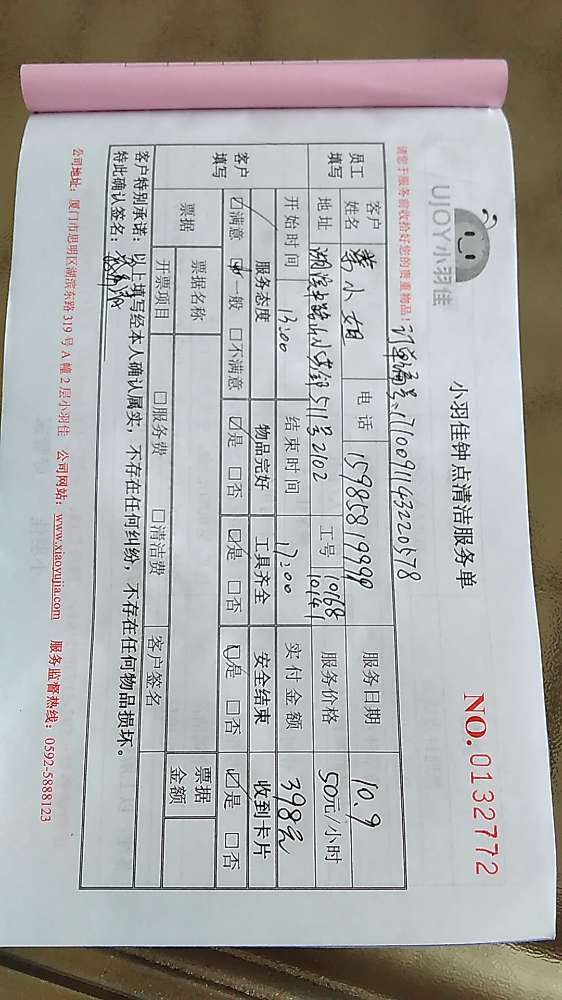 UJOY小羽佳
小羽佳钟点清洁服务单
NO.0132772
请您于服务前收拾好您的贵重物品!
订单编号:1710091143220578
员工填写
客户姓名 小姐 电话 服务日期 10.9
地址 511号2102 工号 10168 10141 服务价格 50元/小时
开始时间 13:00 结束时间 17:00 实付金额 398元
客户填写
服务态度 物品完好 工具齐全 安全结束 收到卡片
☑满意 □一般 □不满意 ☑是 □否 ☑是 □否 ☑是 □否 ☑是 □否
票据 票据名称 票据金额
开票项目 □服务费 □清洁费 客户签名
客户特别承诺:以上填写经本人确认属实,不存在任何纠纷,不存在任何物品损坏。
特此确认签名:
公司地址:厦门市思明区湖滨东路319号A幢2层小羽佳 公司网站:www.xiaoyujia.com 服务监督热线:0592-5888123